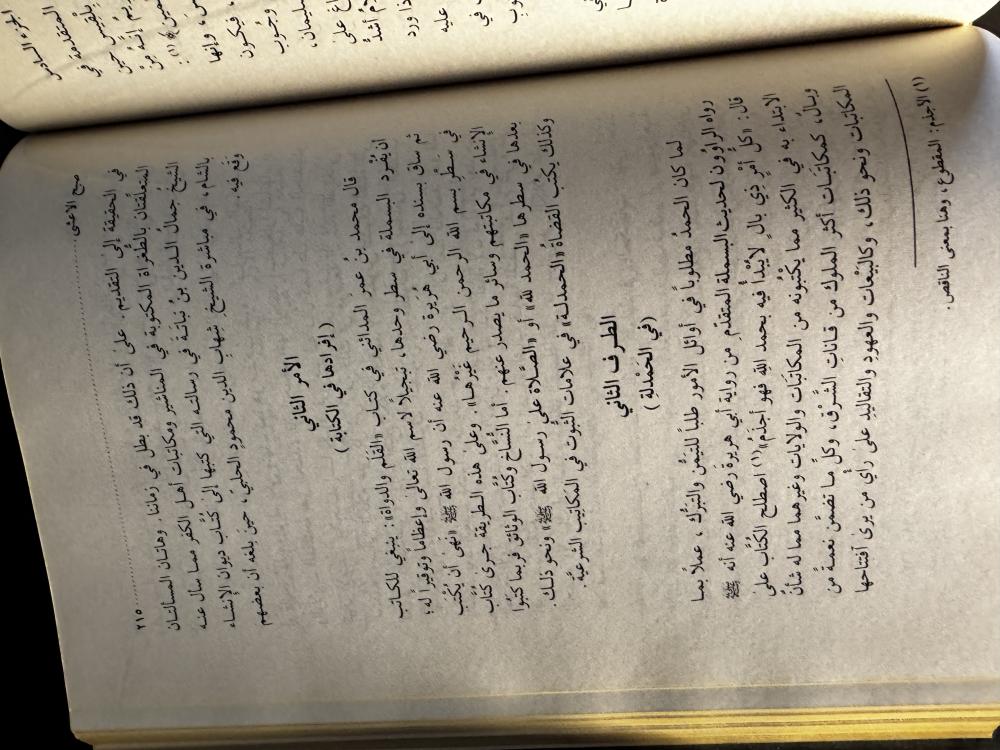 صبح الأعشى ........ ٢١٥
في الحقيقة إلى التقديم. على أن ذلك قد بطل في زماننا. وهاتان المسألتان
المتعلقتان بالطُّغراة المكتوبة في المناشير ومكاتبات أهل الكفر مما سأل عنه
الشيخُ جمالُ الدين بنُ نُباتة في رسالته التي كتبها إلى كُتَّاب ديوان الإنشاء
بالشام، في مباشرة الشيخ شهاب الدين محمود الحلبيّ، حين بلغه أن بعضهم
وقع فيه.
الأمر الثاني
(إفرادها في الكتابة)
قال محمد بنُ عمر المدائني في كتاب «القَلَم والدواة»: ينبغي للكاتب
أن يُفرِد البسملة في سطر وحدها، تبجيلاً لاسم الله تعالى وإعظاماً وتوقيراً له؛
ثم ساق بسنده إلى أبي هُرَيرة رضي الله عنه أن رسول الله ﷺ «نهى أن يُكْتَب
في سَطْرِ بسم الله الرحمن الرحيم غَيْرُها». وعلى هذه الطريقة جرى كُتَّاب
الإنشاء في مكاتبتهم وسائر ما يصدر عنهم. أما النُّسَّاخ وكُتَّاب الوثائق فربما كتبوا
بعدها في سطرها «الحمد لله» أو «الصَّلاة على رسول الله ﷺ» ونحو ذلك.
وكذلك يكتُبُ القضاةُ «الحمدلة» في علامات الثُّبوت في المكاتيب الشرعيَّة.
الطرف الثاني
(في الحَمْدلةِ)
لما كان الحمدُ مطلوباً في أوائل الأمور طلباً للتيمُّن والتبرُّك، عملاً بما
رواه الراوُون لحديث البسملة المتقدّم من رواية أبي هريرة رضي الله عنه أنه ﷺ
قال: «كلُّ أَمْرٍ ذِي بالٍ لايُبْدأُ فيه بحمد اللهِ فهو أجذَمُ»(١) اصطلح الكُتَّاب على
الابتداء به في الكثير مما يكتُبونه من المكاتبات والولايات وغيرهما مما له شأنٌ
وبالٌ، كمكاتَبات أكثر الملوك من قانات الشَّرق، وكلِّ ما تضمَّن نعمةً من
المكاتبات ونحو ذلك، وكالبَيْعات والعهودِ والتقاليدِ على رأي من يرى افتتاحها
(١) الأجذم: المقطوع، وهنا بمعنى الناقص.